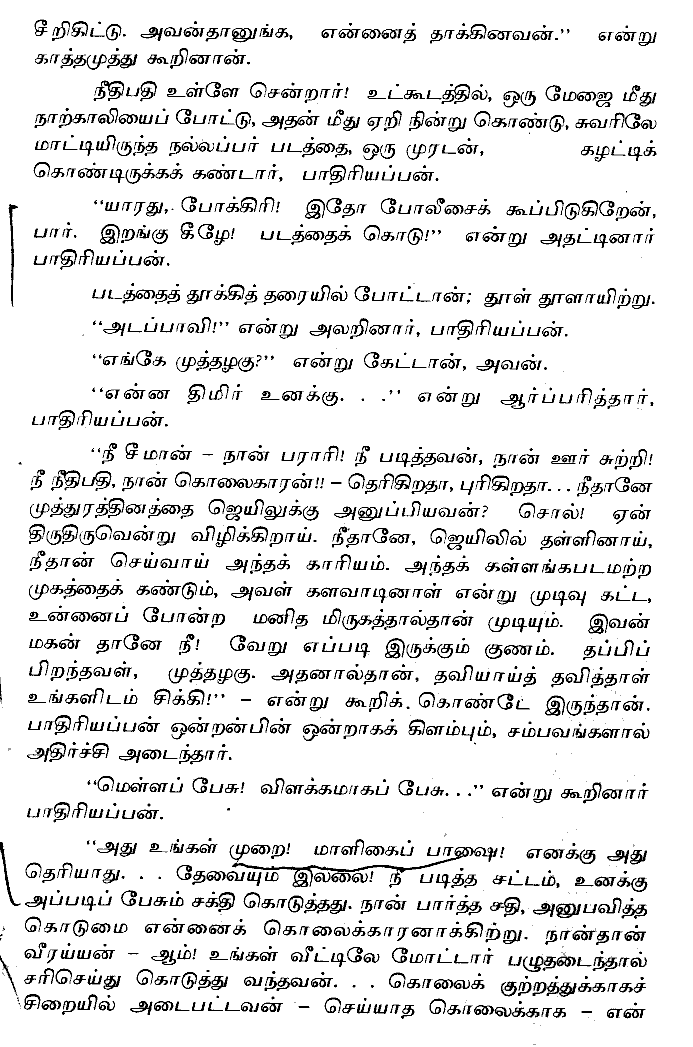 சீறிகிட்டு. அவன்தானுங்க, என்னைத் தாக்கினவன்.” என்று
காத்தமுத்து கூறினான்.
நீதிபதி உள்ளே சென்றார்! உட்கூடத்தில், ஒரு மேஜை மீது
நாற்காலியைப் போட்டு, அதன் மீது ஏறி நின்று கொண்டு, சுவரிலே
மாட்டியிருந்த நல்லப்பர் படத்தை, ஒரு முரடன், கழட்டிக்
கொண்டிருக்கக் கண்டார், பாதிரியப்பன்.
“யாரது, போக்கிரி! இதோ போலீசைக் கூப்பிடுகிறேன்,
பார். இறங்கு கீழே! படத்தைக் கொடு!” என்று அதட்டினார்
பாதிரியப்பன்.
படத்தைத் தூக்கித் தரையில் போட்டான்; தூள் தூளாயிற்று.
“அடப்பாவி!” என்று அலறினார், பாதிரியப்பன்.
“எங்கே முத்தழகு?” என்று கேட்டான், அவன்.
“என்ன திமிர் உனக்கு. . .” என்று ஆர்ப்பரித்தார்,
பாதிரியப்பன்.
“நீ சீமான் – நான் பராரி! நீ படித்தவன், நான் ஊர் சுற்றி!
நீ நீதிபதி, நான் கொலைகாரன்!! – தெரிகிறதா, புரிகிறதா... நீதானே
முத்துரத்தினத்தை ஜெயிலுக்கு அனுப்பியவன்? சொல்! ஏன்
திருதிருவென்று விழிக்கிறாய். நீதானே, ஜெயிலில் தள்ளினாய்,
நீதான் செய்வாய் அந்தக் காரியம். அந்தக் கள்ளங்கபடமற்ற
முகத்தைக் கண்டும், அவள் களவாடினாள் என்று முடிவு கட்ட,
உன்னைப் போன்ற மனித மிருகத்தால்தான் முடியும். இவன்
மகன் தானே நீ! வேறு எப்படி இருக்கும் குணம். தப்பிப்
பிறந்தவள், முத்தழகு. அதனால்தான், தவியாய்த் தவித்தாள்
உங்களிடம் சிக்கி!” – என்று கூறிக் கொண்டே இருந்தான்.
பாதிரியப்பன் ஒன்றன்பின் ஒன்றாகக் கிளம்பும், சம்பவங்களால்
அதிர்ச்சி அடைந்தார்.
“மெள்ளப் பேசு! விளக்கமாகப் பேசு...” என்று கூறினார்
பாதிரியப்பன்.
“அது உங்கள் முறை! மாளிகைப் பாஷை! எனக்கு அது
தெரியாது. . . தேவையும் இல்லை! நீ படித்த சட்டம், உனக்கு
அப்படிப் பேசும் சக்தி கொடுத்தது. நான் பார்த்த சதி, அனுபவித்த
கொடுமை என்னைக் கொலைக்காரனாக்கிற்று. நான்தான்
வீரய்யன் – ஆம்! உங்கள் வீட்டிலே மோட்டார் பழுதடைந்தால்
சரிசெய்து கொடுத்து வந்தவன். . . கொலைக் குற்றத்துக்காகச்
சிறையில் அடைபட்டவன் – செய்யாத கொலைக்காக – என்